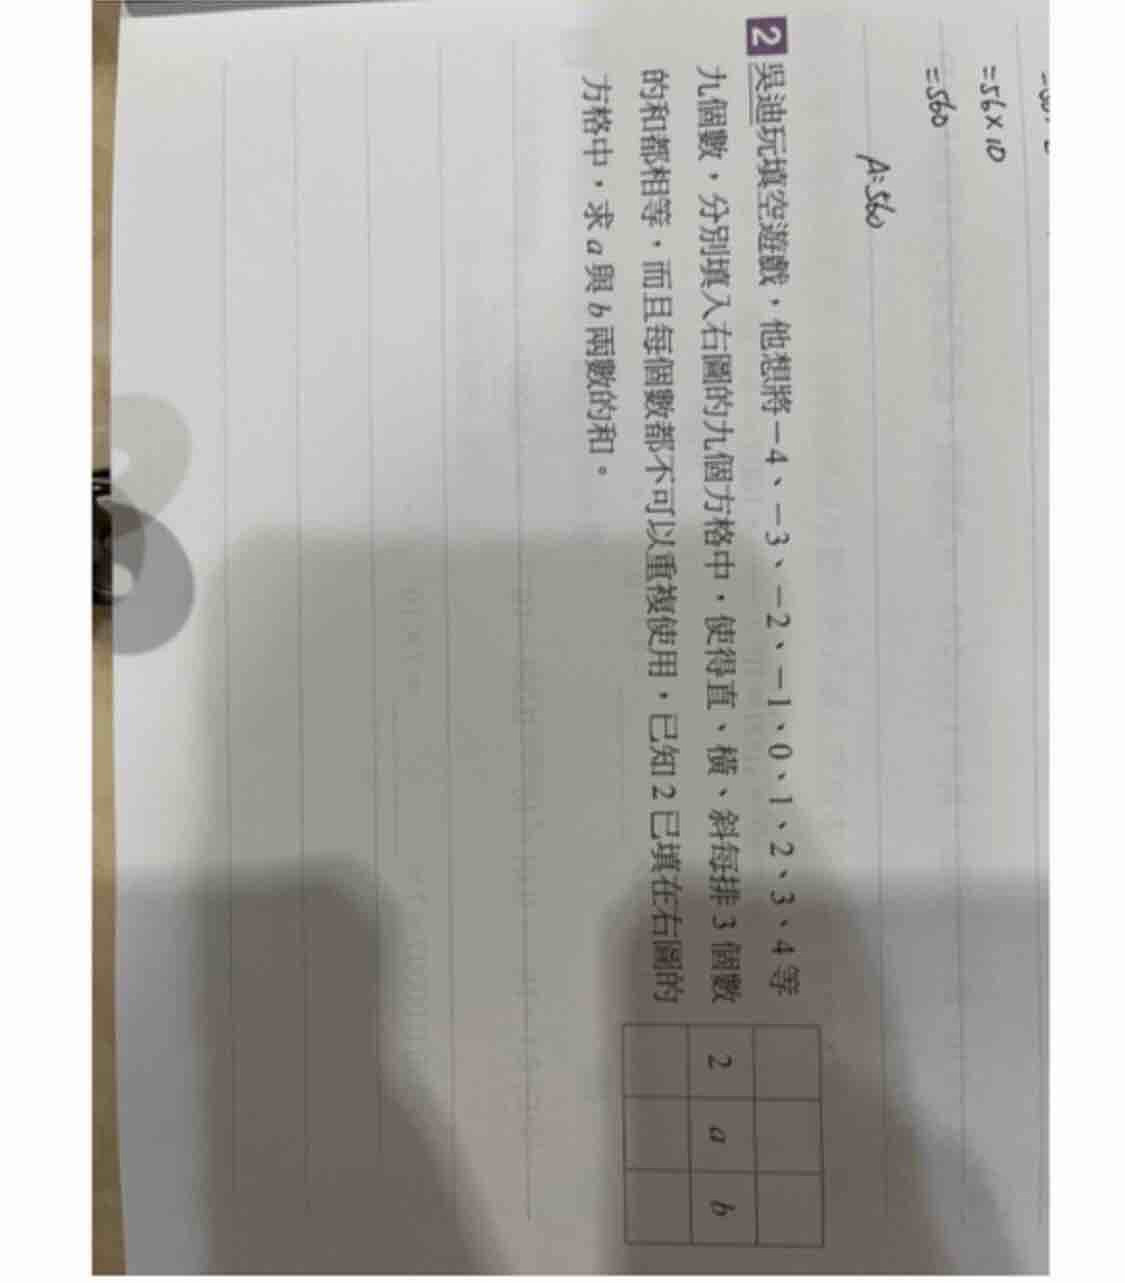 =56×10
=560
A:560
2 吳迪玩填空遊戲，他想將－4、－3、－2、－1、0、1、2、3、4等
九個數，分別填入右圖的九個方格中，使得直、橫、斜每排3個數
的和都相等，而且每個數都不可以重複使用，已知2已填在右圖的
方格中，求a與b兩數的和。
2 a b